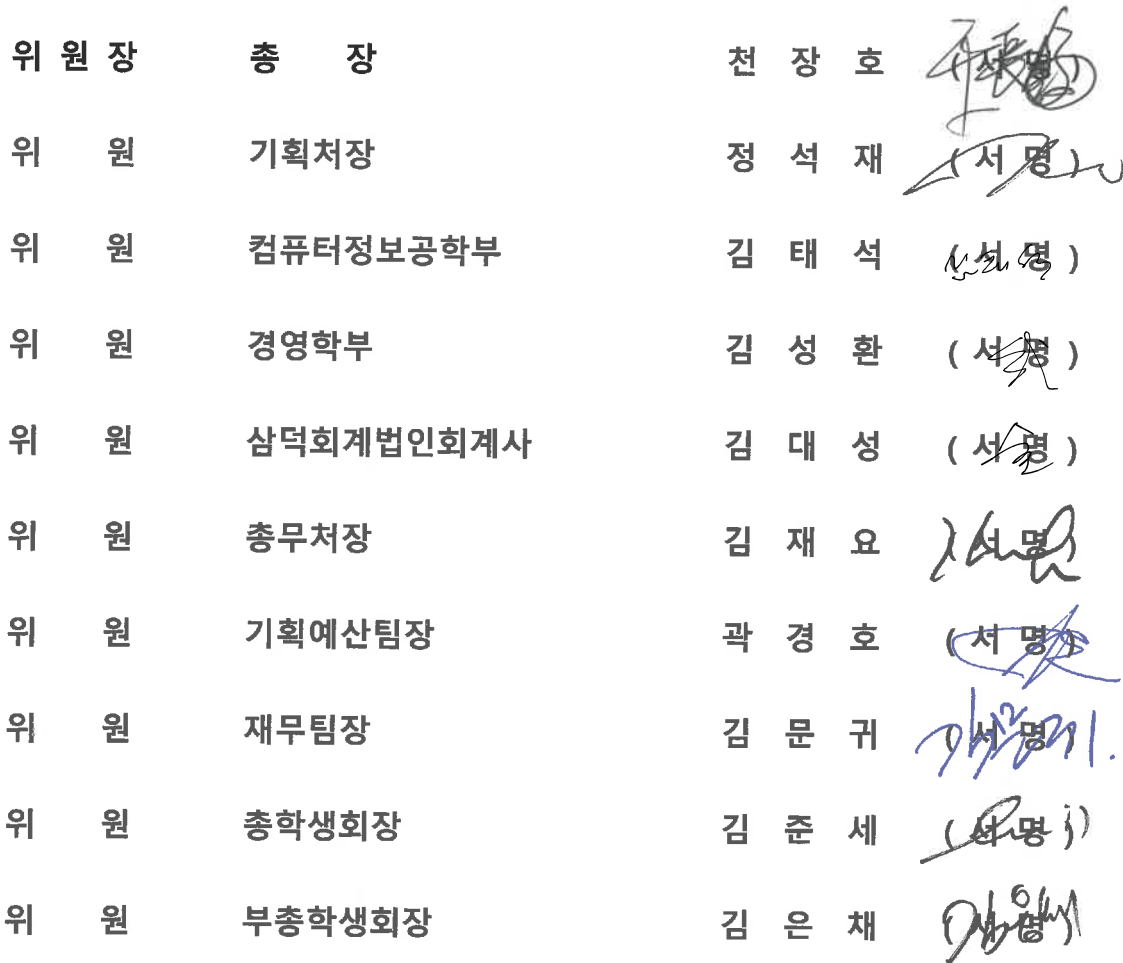 위 원 장 총 장 천 장 호 (서 명)
위 원 기획처장 정 석 재 (서 명)
위 원 컴퓨터정보공학부 김 태 석 (서 명)
위 원 경영학부 김 성 환 (서 명)
위 원 삼덕회계법인회계사 김 대 성 (서 명)
위 원 총무처장 김 재 요 (서 명)
위 원 기획예산팀장 곽 경 호 (서 명)
위 원 재무팀장 김 문 귀 (서 명)
위 원 총학생회장 김 준 세 (서 명)
위 원 부총학생회장 김 은 채 (서 명)